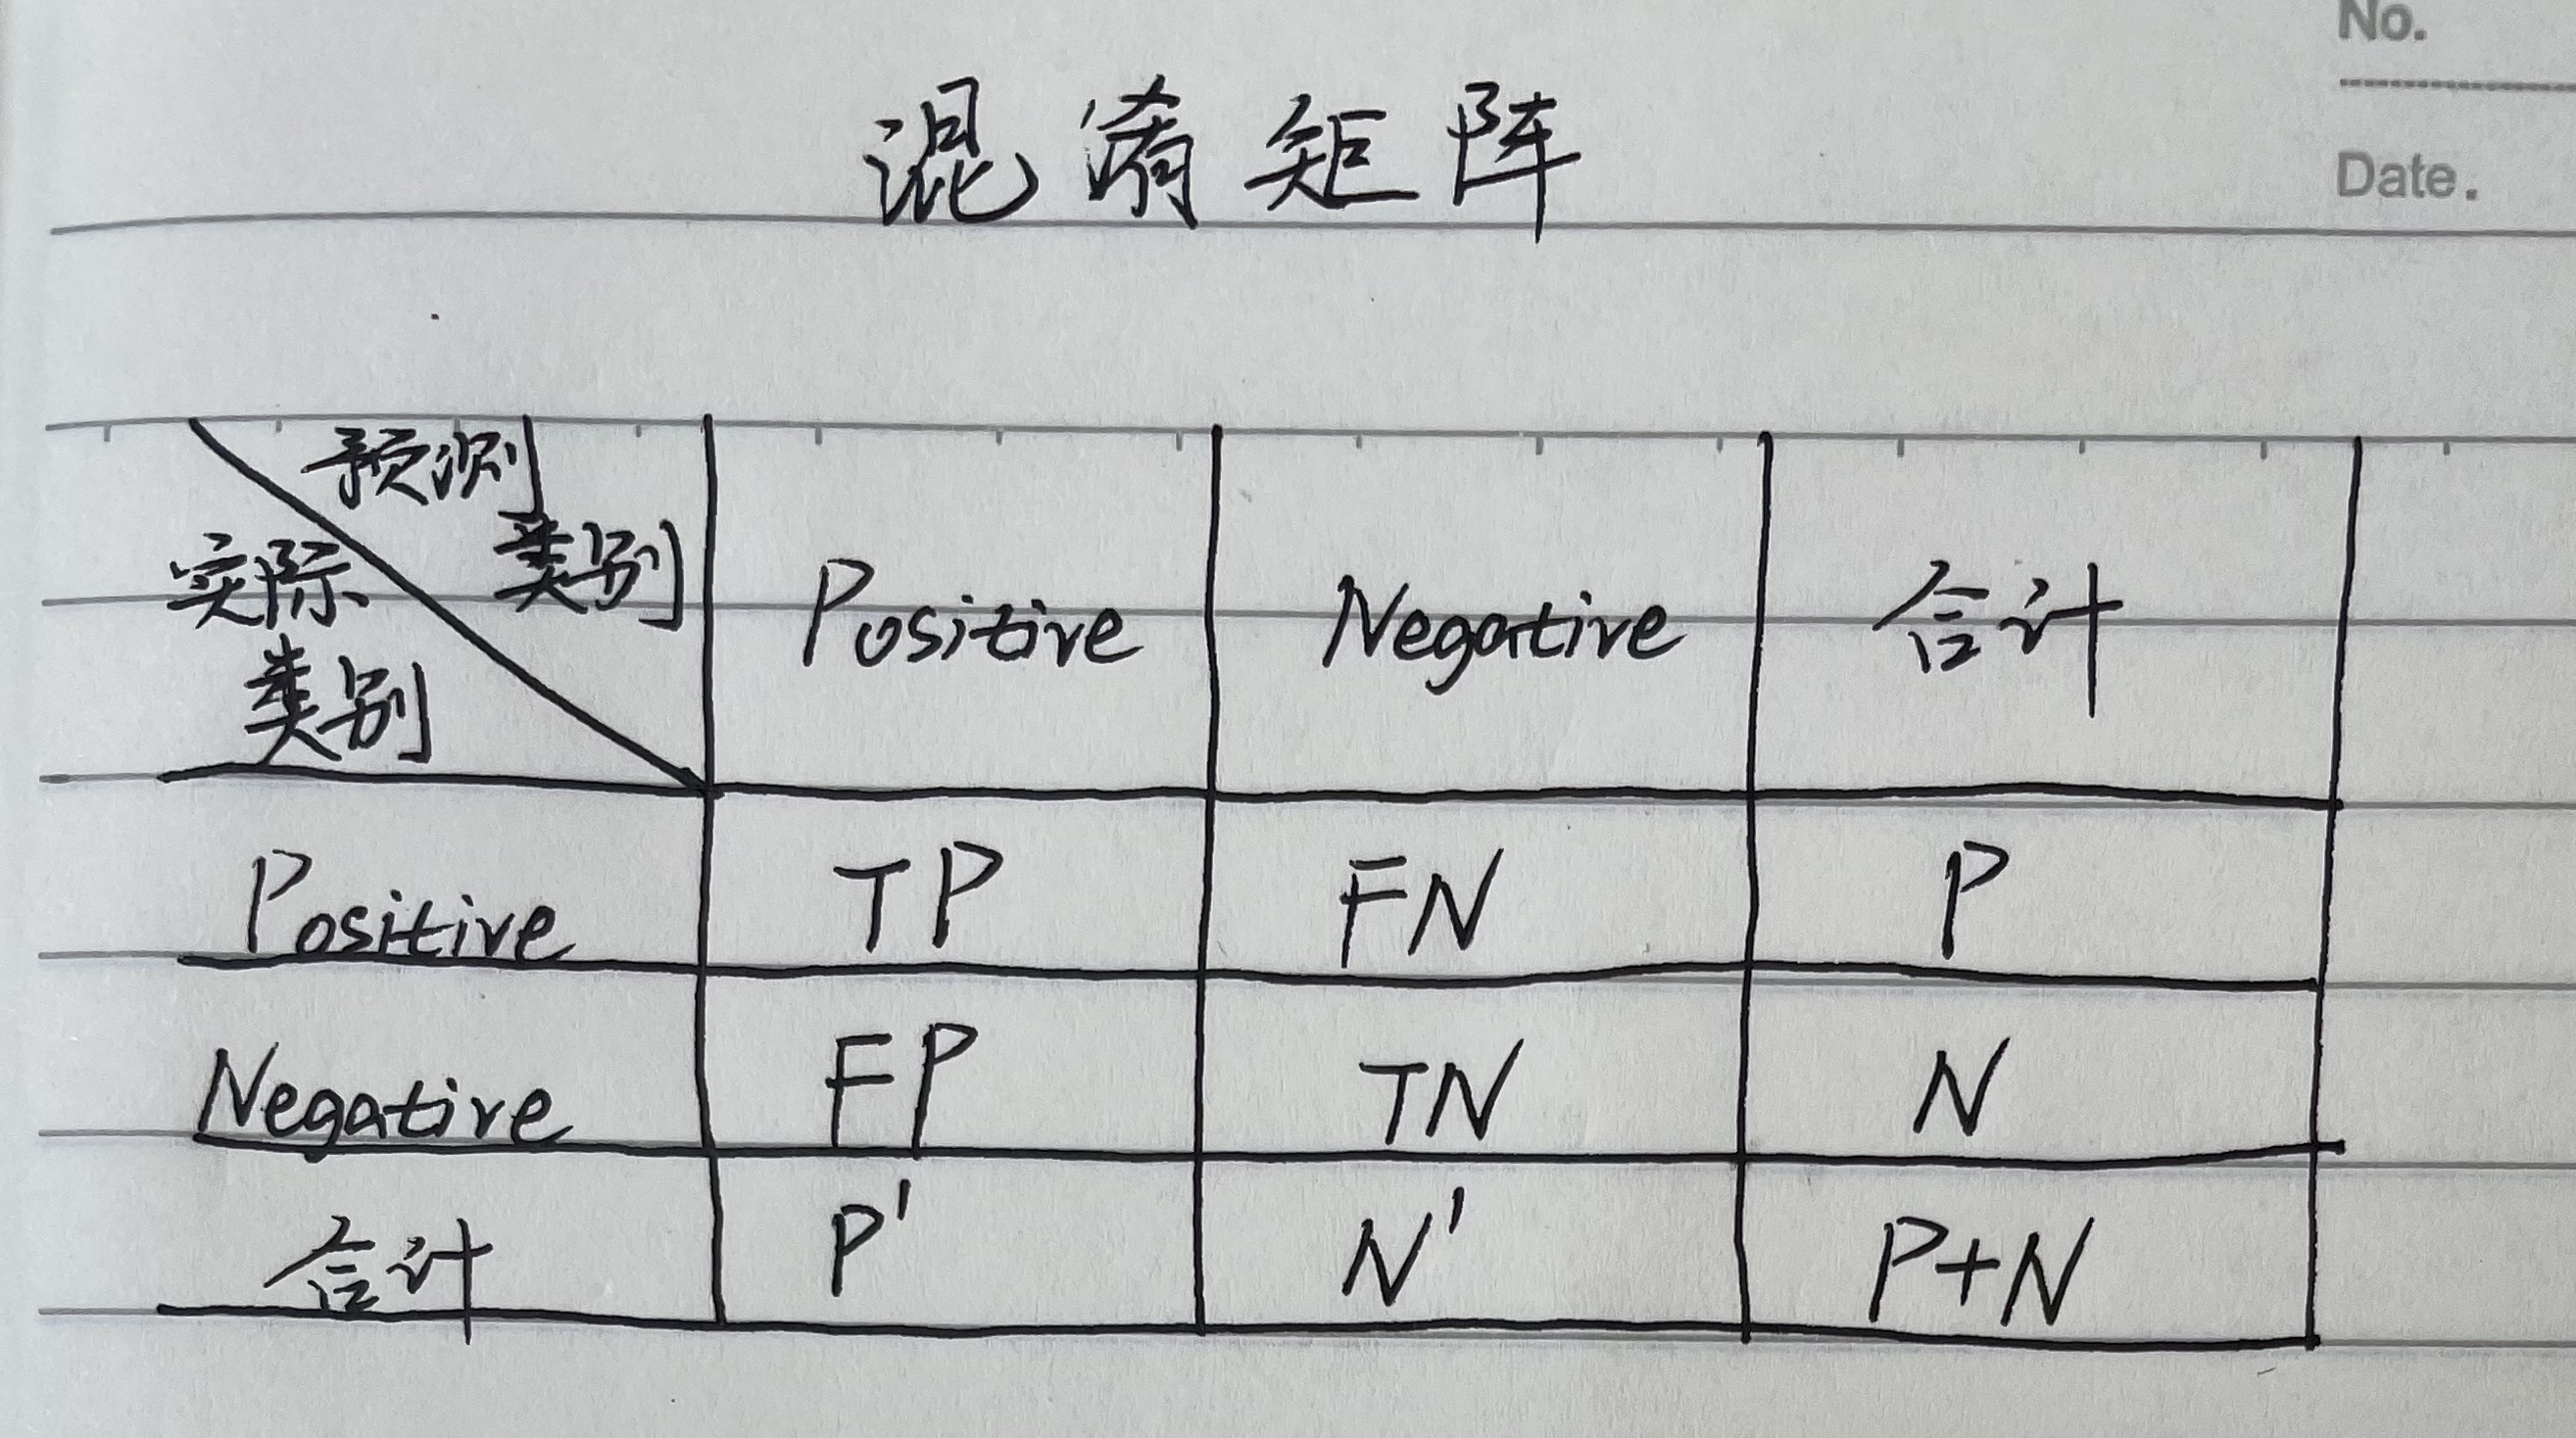 No.
Date.
混淆矩阵
预测类别
实际类别
Positive Negative 合计
Positive TP FN P
Negative FP TN N
合计 P' N' P+N